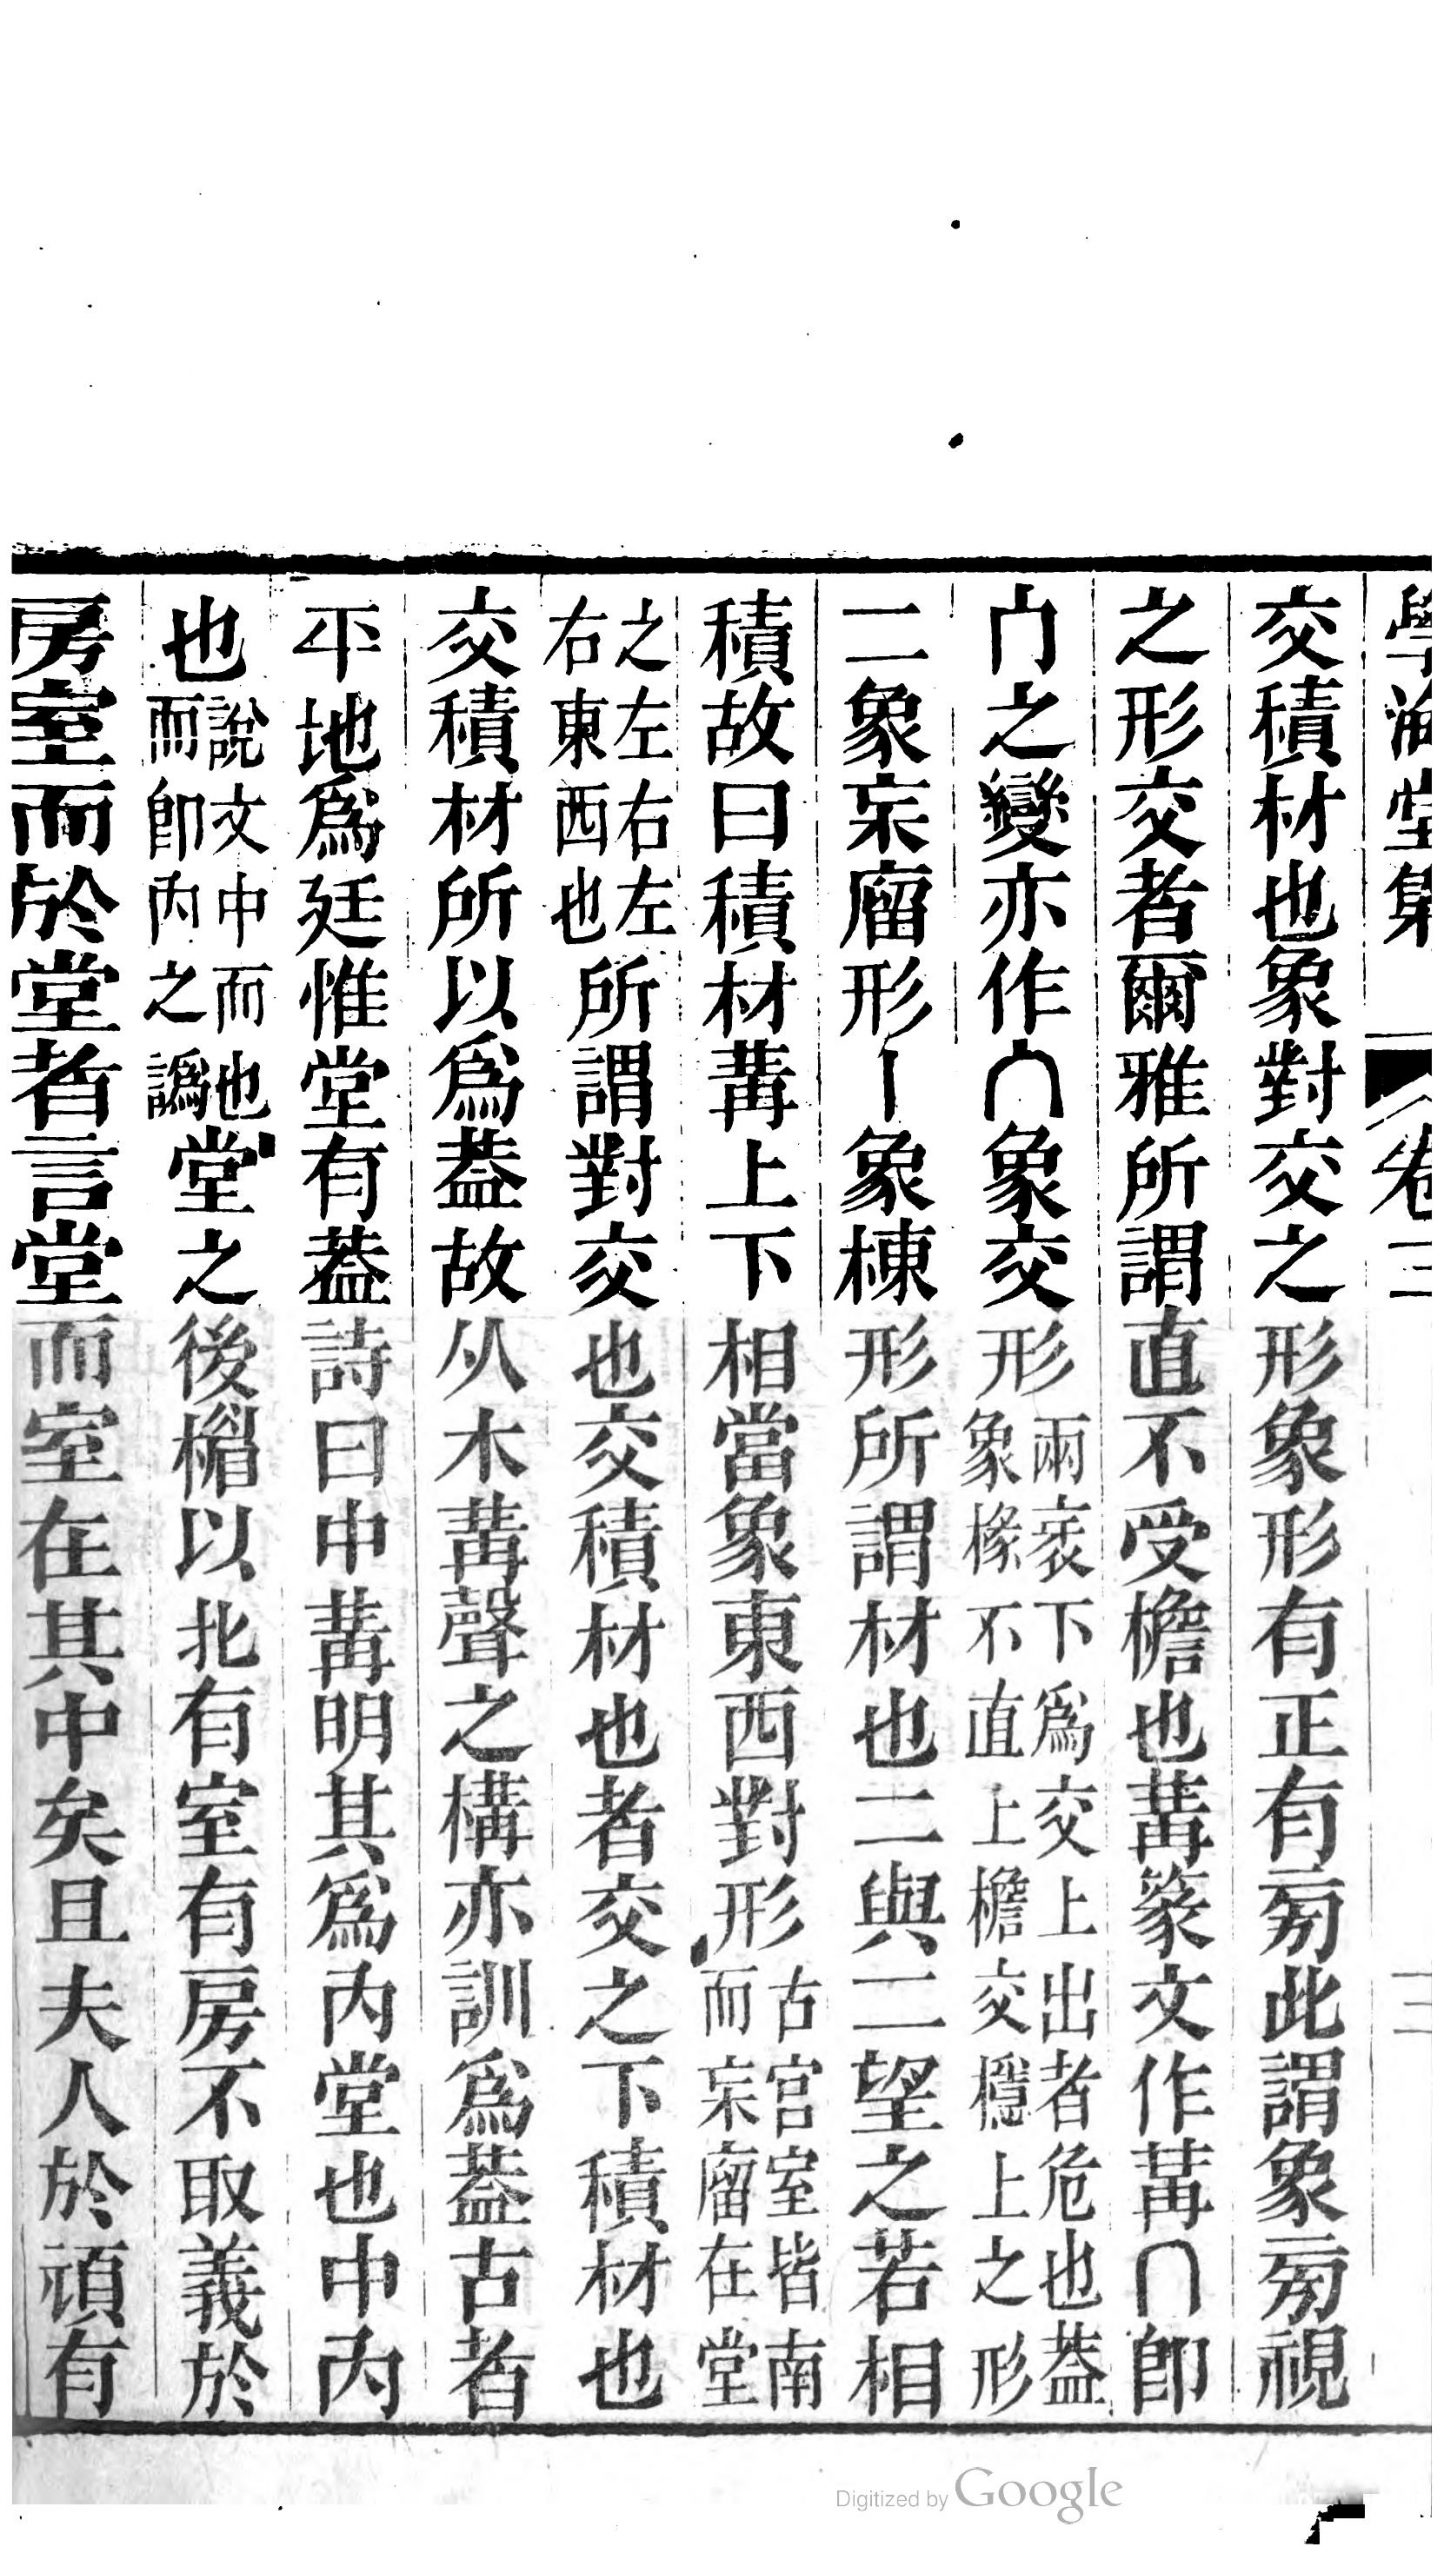 學海堂集 卷三 三
交積材也象對交之形象形有正有㫄此謂象㫄視
之形交者爾雅所謂直不受檐也冓篆文作冓冂即
冂之變亦作∩象交形兩衺下爲交上出者危也葢象㭒不直上檐交檼上之形
二象宩廇形丨象棟形所謂材也二與二望之若相
積故曰積材冓上下相當象東西對形古宫室皆南而宩廇在堂
之左右左右東西也所謂對交也交積材也者交之下積材也
交積材所以爲葢故从木冓聲之構亦訓爲葢古者
平地爲廷惟堂有葢詩曰中冓明其爲内堂也中内
也說文中而也而卽内之譌堂之後楣以北有室有房不取義於
房室而於堂者言堂而室在其中矣且夫人於頑有
Digitized by Google